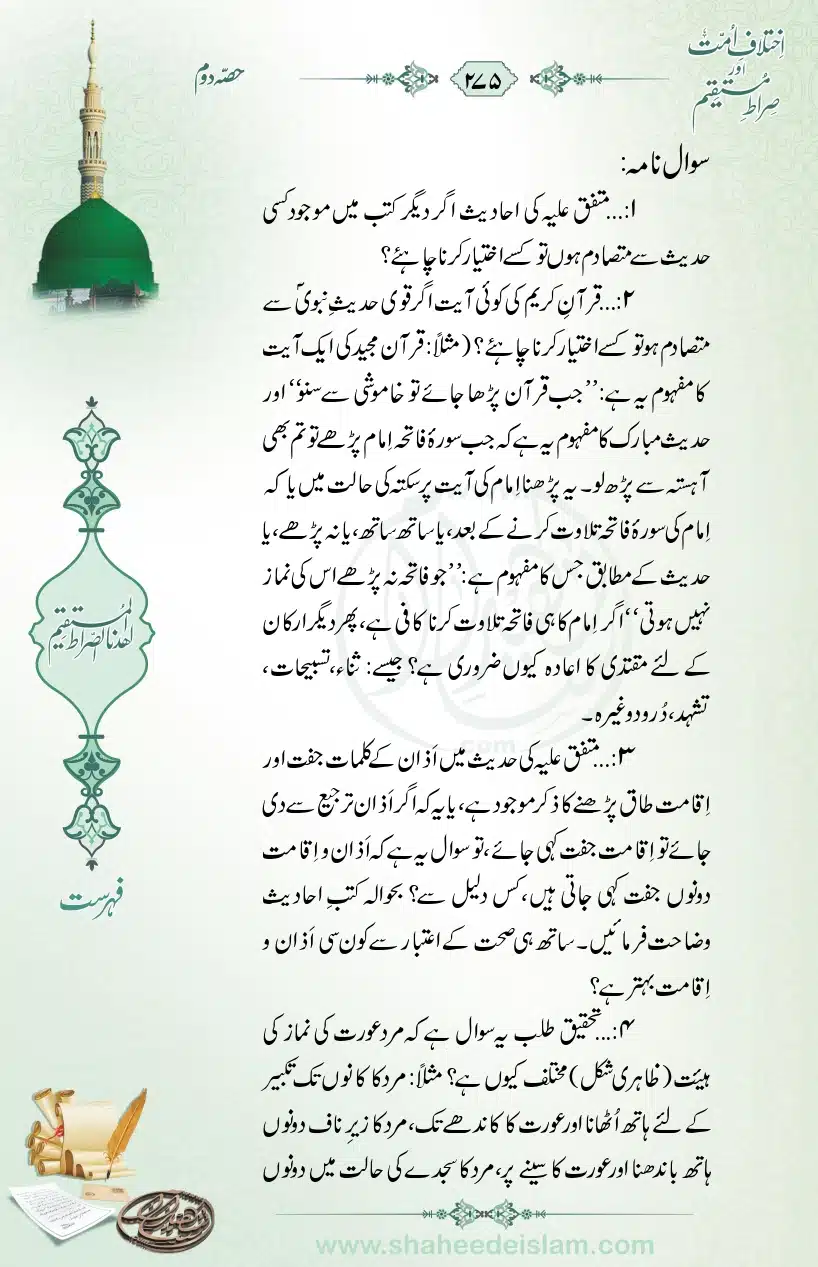 اِختلافِ اُمّت
اور
صِراطِ مُستقیم
۲۷۵
حصّہ دوم
سوال نامہ:
۱:...متفق علیہ کی احادیث اگر دیگر کتب میں موجود کسی
حدیث سے متصادم ہوں تو کسے اختیار کرنا چاہئے؟
۲:...قرآنِ کریم کی کوئی آیت اگر قوی حدیثِ نبویؐ سے
متصادم ہو تو کسے اختیار کرنا چاہئے؟ (مثلاً: قرآن مجید کی ایک آیت
کا مفہوم یہ ہے: ’’جب قرآن پڑھا جائے تو خاموشی سے سنو‘‘ اور
حدیث مبارک کا مفہوم یہ ہے کہ جب سورۂ فاتحہ اِمام پڑھے تو تم بھی
آہستہ سے پڑھ لو۔ یہ پڑھنا اِمام کی آیت پر سکتہ کی حالت میں یا کہ
اِمام کی سورۂ فاتحہ تلاوت کرنے کے بعد، یا ساتھ ساتھ، یا نہ پڑھے، یا
حدیث کے مطابق جس کا مفہوم ہے: ’’جو فاتحہ نہ پڑھے اس کی نماز
نہیں ہوتی‘‘ اگر اِمام کا ہی فاتحہ تلاوت کرنا کافی ہے، پھر دیگر ارکان
کے لئے مقتدی کا اعادہ کیوں ضروری ہے؟ جیسے: ثناء، تسبیحات،
تشہد، دُرود وغیرہ۔
۳:...متفق علیہ کی حدیث میں اَذان کے کلمات جفت اور
اِقامت طاق پڑھنے کا ذکر موجود ہے، یا یہ کہ اگر اَذان ترجیع سے دی
جائے تو اِقامت جفت کہی جائے، تو سوال یہ ہے کہ اَذان و اِقامت
دونوں جفت کہی جاتی ہیں، کس دلیل سے؟ بحوالہ کتبِ احادیث
وضاحت فرمائیں۔ ساتھ ہی صحت کے اعتبار سے کون سی اَذان و
اِقامت بہتر ہے؟
۴:...تحقیق طلب یہ سوال ہے کہ مرد عورت کی نماز کی
ہیئت (ظاہری شکل) مختلف کیوں ہے؟ مثلاً: مرد کا کانوں تک تکبیر
کے لئے ہاتھ اُٹھانا اور عورت کا کاندھے تک، مرد کا زیرِ ناف دونوں
ہاتھ باندھنا اور عورت کا سینے پر، مرد کا سجدے کی حالت میں دونوں
اهدنا الصراط المستقیم
فہرست
www.shaheedeislam.com